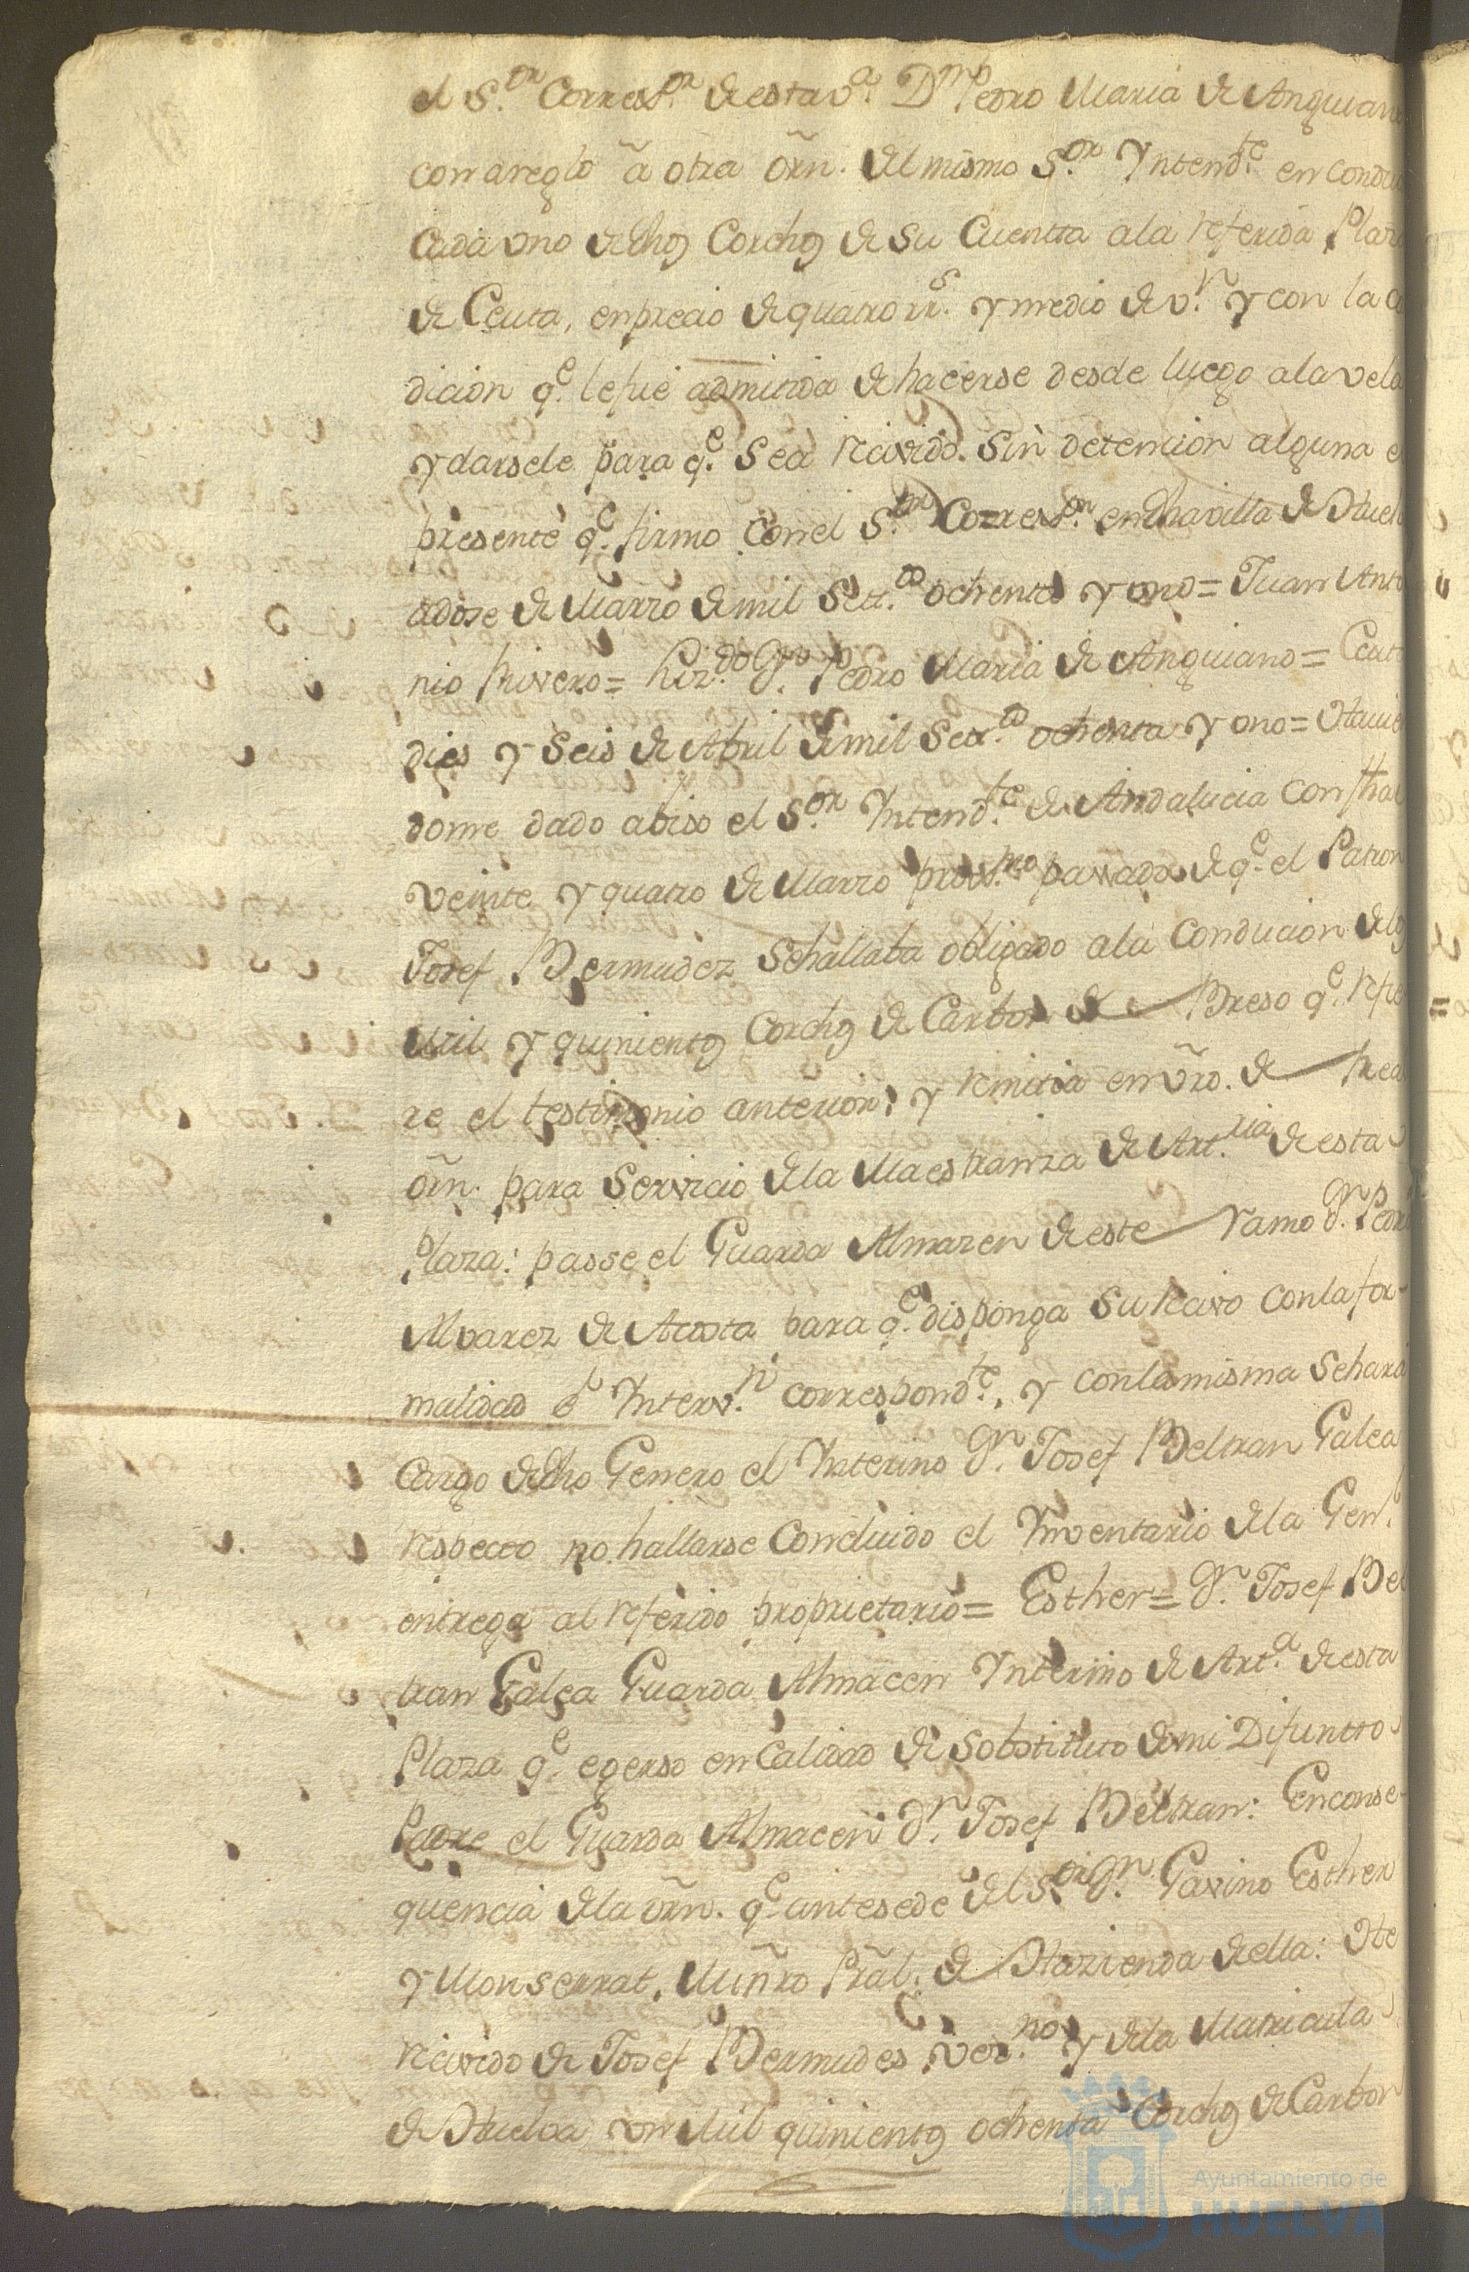 el S.or Correx.or de esta v.a D.n Pedro Maria de Anguiano
con areglo â otra õrn. del mismo S.or Yntend.te en condu
cada uno de dhos Corchos de su Cuenta ala referida Plaza
de Ceuta, en precio de quatro rr.s y medio de v.n y con la co
dicion q.e le fue admitida de hacerse desde luego ala vela
y darsele para q.e sea recivido sin detencion alguna el
presente q.e firmo con el S.or Correx.or en dha villa de Huel
a dose de Marzo de mil Sett.os ochenta y uno = Juan Anto
nio Rivero = Liz.do D.n Pedro Maria de Anguiano = Ceuta
dies y seis de Abril de mil Sett.os ochenta y uno = Havien
dome dado abiso el S.or Yntend.te de Andalucia con fha
veinte y quatro de Marzo prox.mo passado de q.e el Patron
Josef Bermudez se hallaba obligado ala Conducion de los
Mil y quinientos Corchos de Carbon de Breso q.e refie
re el testimonio anterior, y remitia en vro. de Real
õrn. para servicio de la Maestranza de Art.ria de esta
Plaza: passe el Guarda Almazen de este ramo D.n Pedro
Alvarez de Acosta para q.e disponga su recivo con la for-
malidad é Interv.n correspond.te, y con la misma se hara
cargo de dho Genero el Ynterino D.n Josef Beltran Galea
respecto no hallarse concluido el Ynventario de la Gen.l
entrega al referido proprietario = Esther = D.n Josef Bel
tran Galea Guarda Almacen Ynterino de Art.a de esta
Plaza q.e egerso en Calidad de Sobstituto de mi Difunto
Padre el Guarda Almacen D.n Josef Beltran: En conse-
quencia de la õrn. q.e antesede del S.or D.n Gavino Esther
y Monserrat, Miñro Prâl. de Hazienda de ella: He
recivido de Josef Bermudes vez.no y de la Matricula
de Huelva un Mil quinientos ochenta Corchos de Carbon
Ayuntamiento de
HUELVA